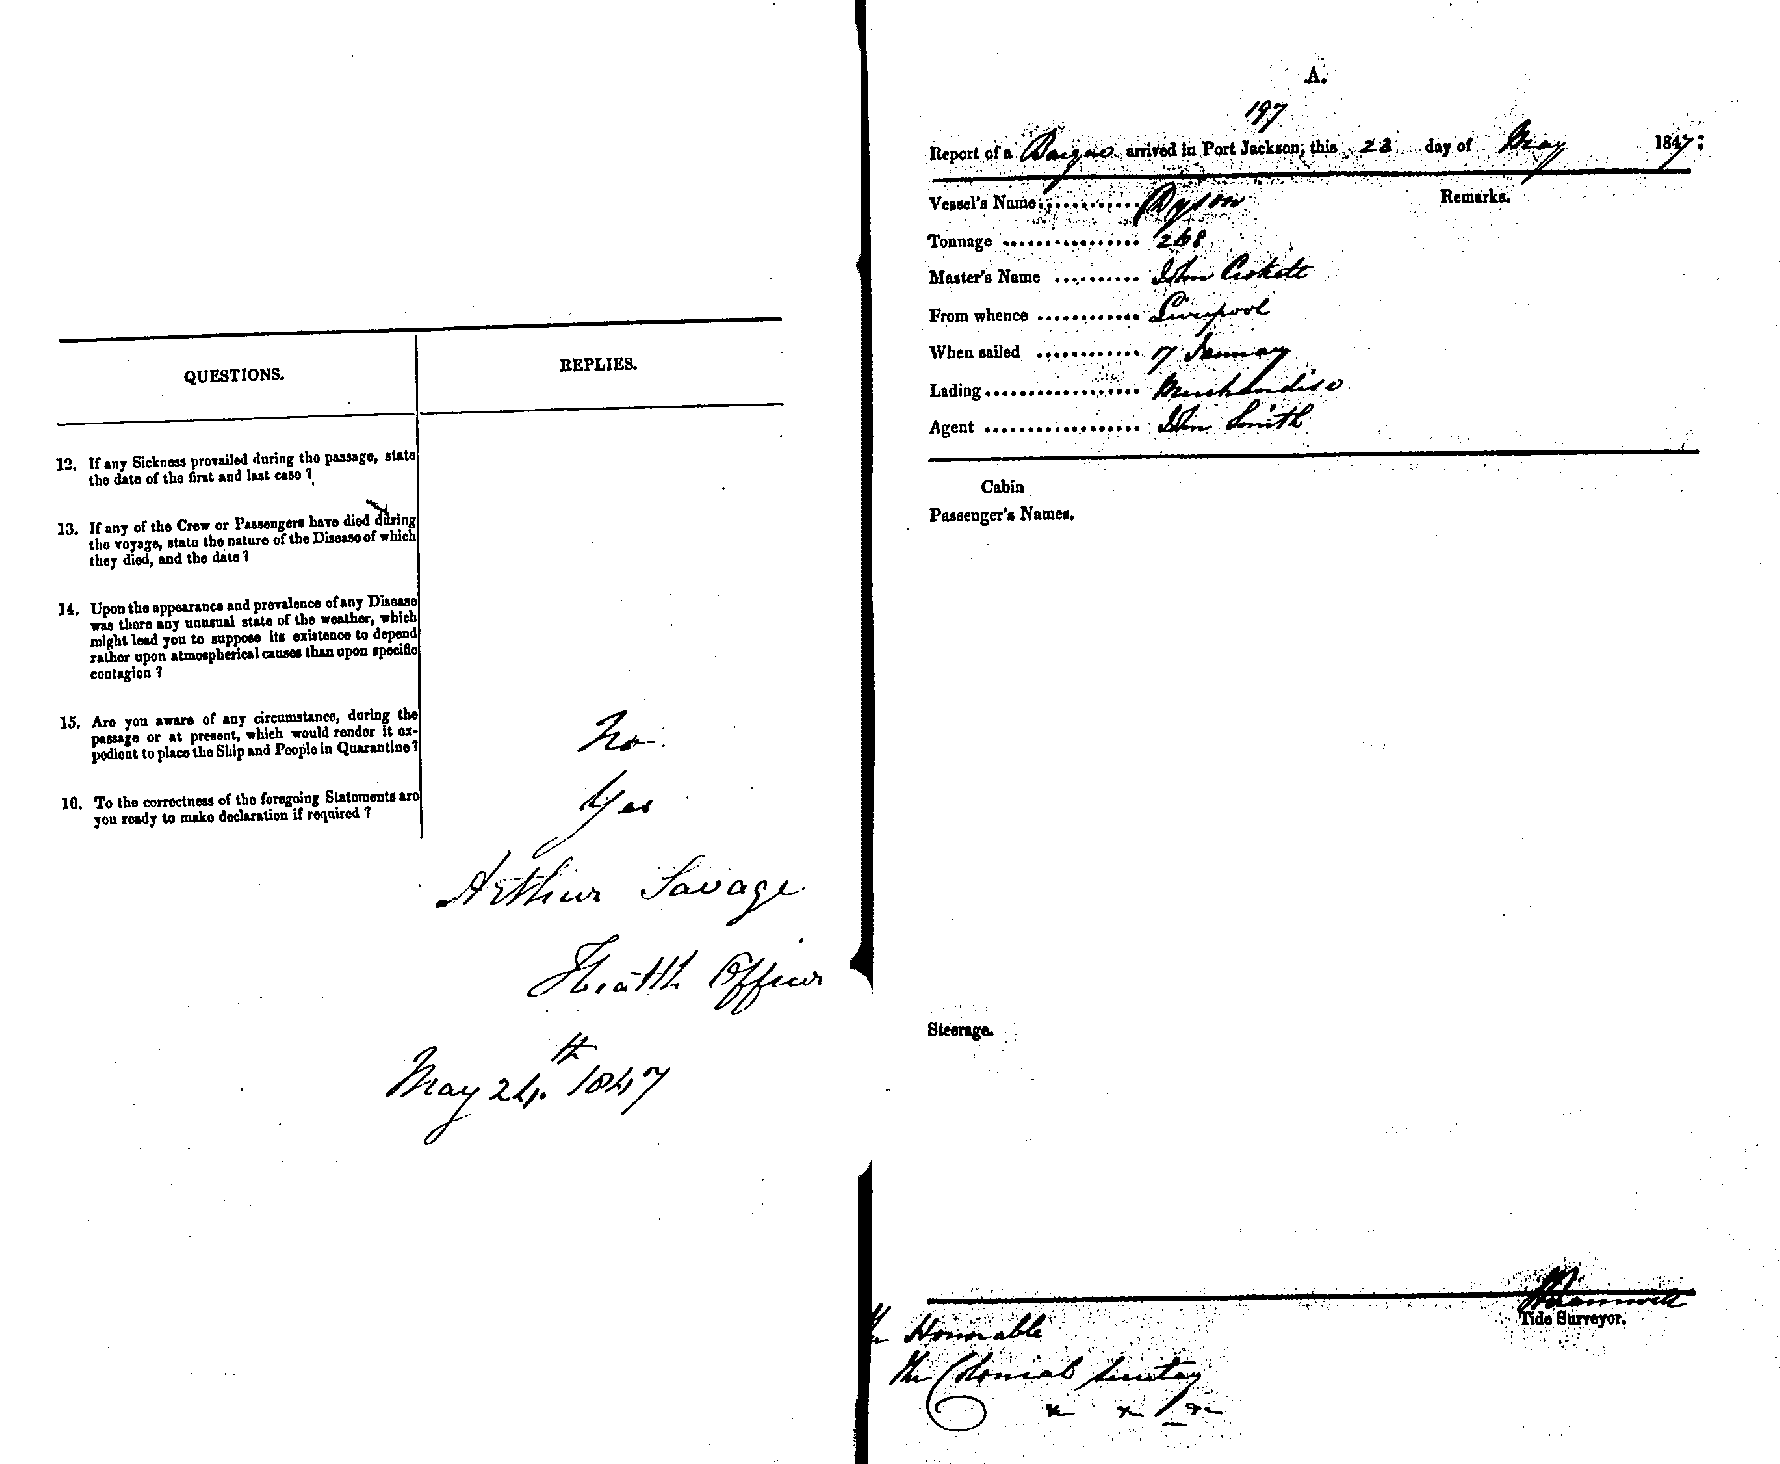 QUESTIONS.
REPLIES.
12. If any Sickness prevailed during the passage, state
the date of the first and last case ?
13. If any of the Crew or Passengers have died during
the voyage, state the nature of the Disease of which
they died, and the date ?
14. Upon the appearance and prevalence of any Disease
was there any unusual state of the weather, which
might lead you to suppose its existence to depend
rather upon atmospherical causes than upon specific
contagion ?
15. Are you aware of any circumstance, during the
passage or at present, which would render it ex-
pedient to place the Ship and People in Quarantine ?
No
16. To the correctness of the foregoing Statements are
you ready to make declaration if required ?
Yes
Arthur Savage
Health Officer
May 24th 1847
A.
197
Report of a Barque arrived in Port Jackson, this 23 day of May 1847;
Vessel's Name Dyson
Remarks.
Tonnage 268
Master's Name John
From whence Liverpool
When sailed 17 January
Lading Merchandise
Agent John Smith
Cabin
Passenger's Names.
Steerage.
Tide Surveyor.
The Honorable
The Colonial Secretary